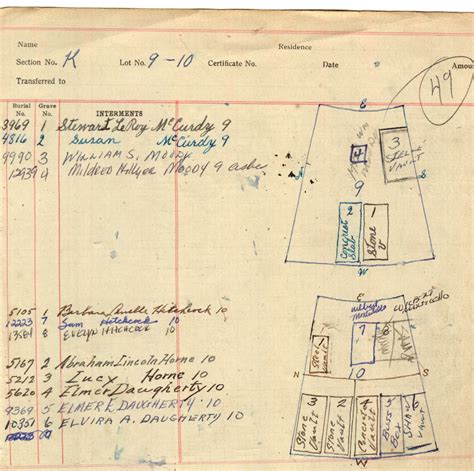 Name
Residence
Section No. K
Lot No. 9-10
Certificate No.
Date
Amou
Transferred to
49
Burial No.
Grave No.
INTERMENTS
3969 1 Stewart LeRoy McCurdy 9
4816 2 Susan McCurdy 9
9990 3 WILLIAM S. MOODY
12939 4 Mildred Hillyer Moody 9
E
3
VAULT
4
9
S
2
1
Stone
W
5105 1 Barbara Hitchcock 10
12223 7 Sam Hitchcock 10
13584 8 EVELYN HITCHCOCK 10
5167 2 Abraham Lincoln Horne 10
5212 3 Lucy Horne 10
5620 4 Elmer Daugherty 10
9369 5 ELMER E. DAUGHERTY 10
10351 6 ELVIRA A. DAUGHERTY 10
E
7
N
10
S
3
Stone
Vault
2
Stone
Vault
4
Concrete
Vault
5
Box
6
VAULT
W